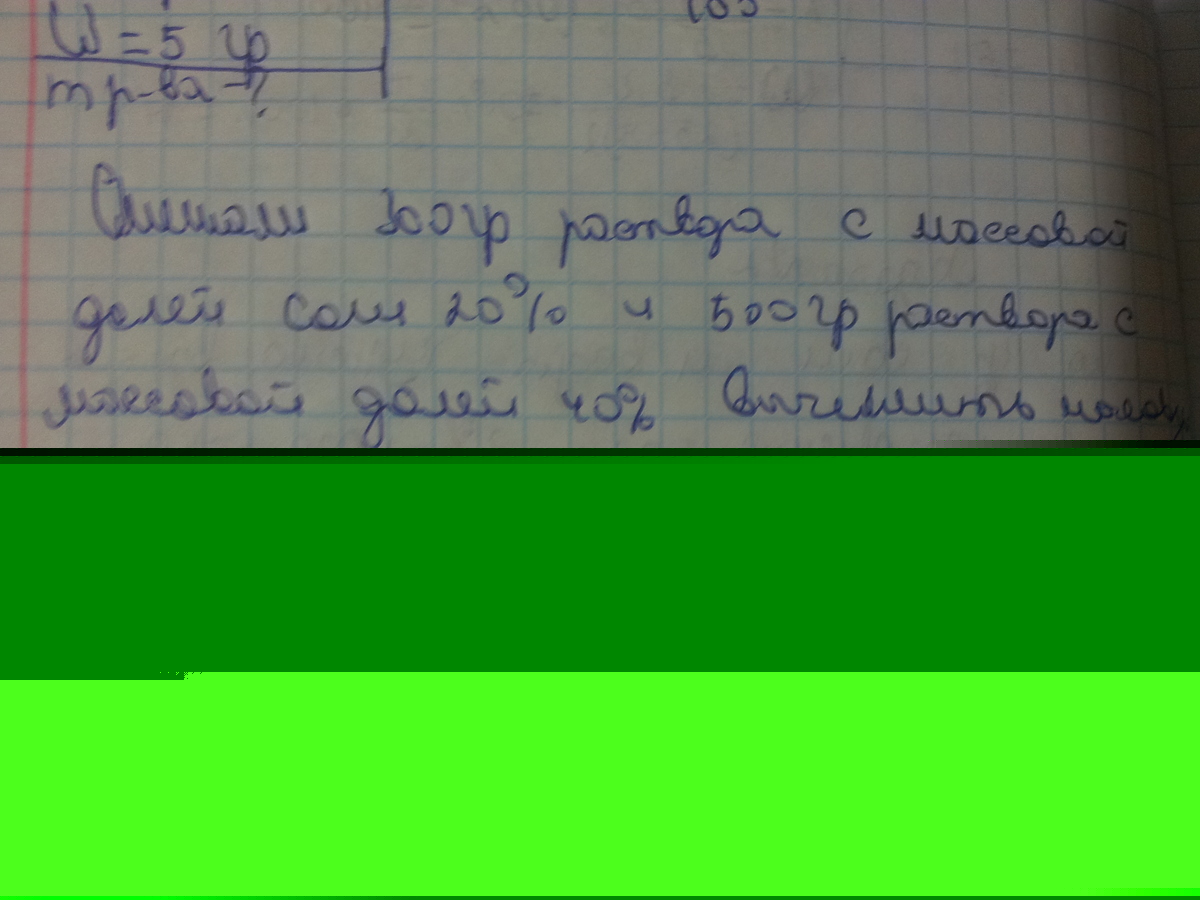 W = 5 гр
m р-ва - ?
Смешали 300гр раствора с массовой
долей соли 20% и 500гр раствора с
массовой долей 40% Вычислить